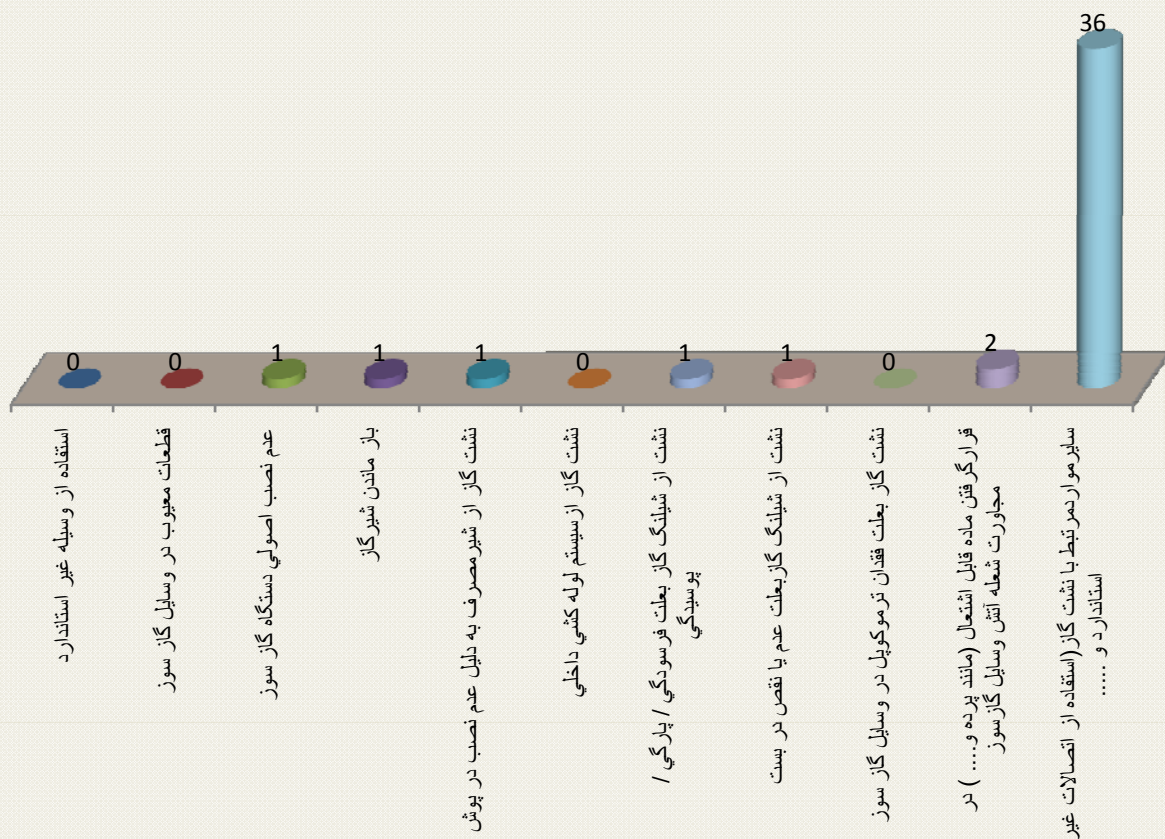 36
0
0
1
1
1
0
1
1
0
2
استفاده از وسيله غير استاندارد
قطعات معيوب در وسايل گاز سوز
عدم نصب اصولي دستگاه گاز سوز
باز ماندن شيرگاز
نشت گاز از شيرمصرف به دليل عدم نصب در پوش
نشت گاز ازسيستم لوله كشي داخلي
نشت از شيلنگ گاز بعلت فرسودگي / پارگي /
پوسيدگي
نشت از شيلنگ گازبعلت عدم يا نقص در بست
نشت گاز بعلت فقدان ترموكوپل در وسايل گاز سوز
قرارگرفتن ماده قابل اشتعال (مانند پرده و.... ) در
مجاورت شعله آتش وسايل گازسوز
سايرمواردمرتبط با نشت گاز(استفاده از اتصالات غير
استاندارد و .....